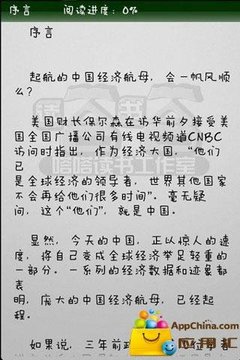 序言 阅读进度：0%
序言
起航的中国经济航母，会一帆风顺
么？
美国财长保尔森在访华前夕接受美
国全国广播公司有线电视频道CNBC
访问时指出，作为经济大国，“他们
已
是全球经济的领导者，世界其他国家
不会再给他们很多时间”。毫无疑
问，这个“他们”，就是中国。
显然，今天的中国，正以惊人的速
度，将自己变成全球经济举足轻重的
一部分。一系列的经济数据和迹象都
表
明，庞大的中国经济航母，已经起
程。
如果说，三年前
AppChina.com
应用汇